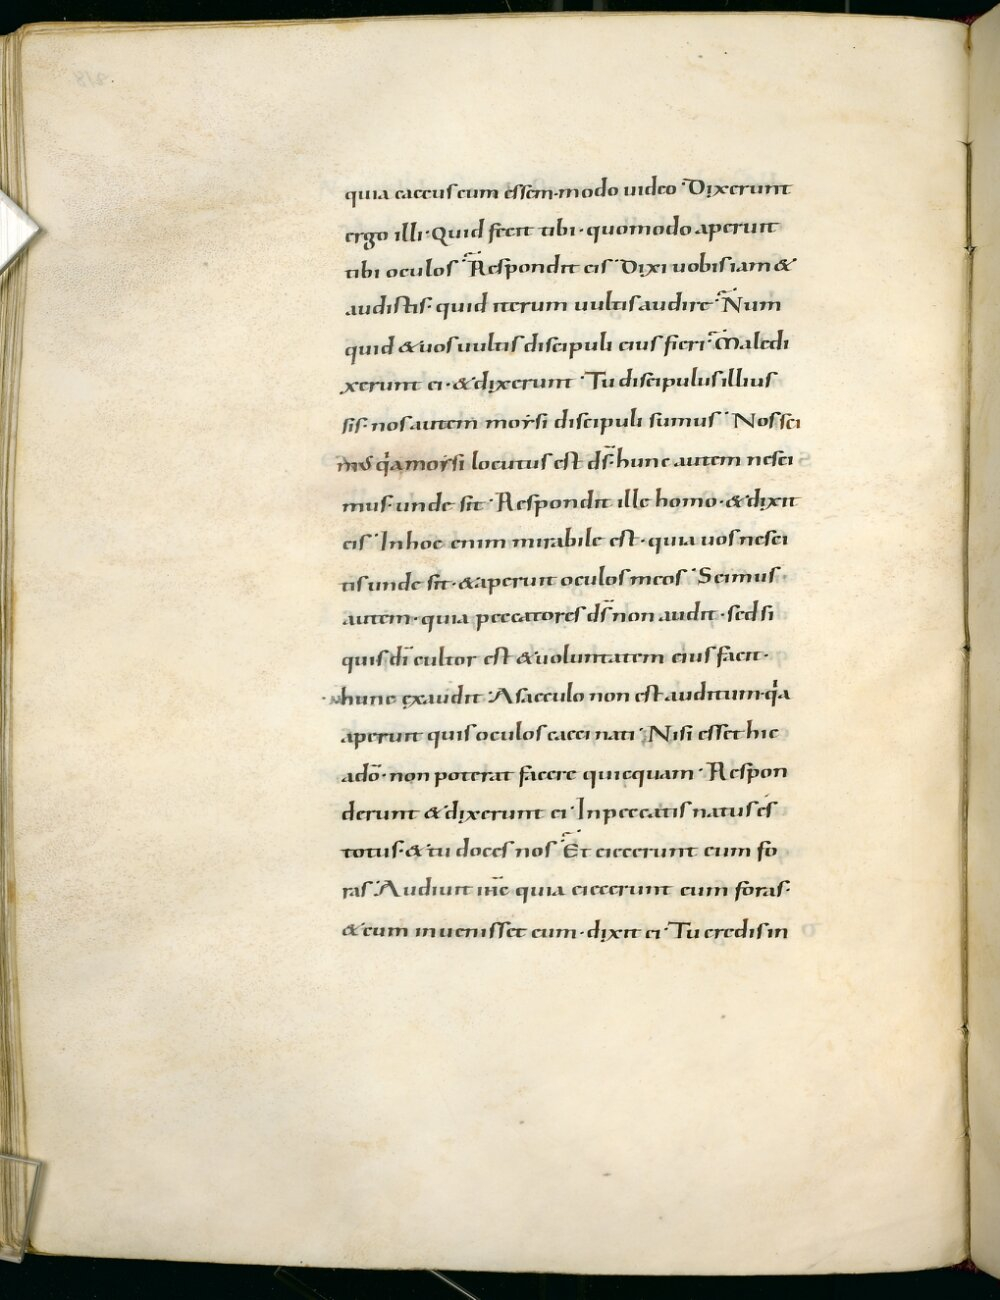 quia caecus cum essem· modo uideo· Dixerunt
ergo illi· Quid fecit tibi· quomodo aperuit
tibi oculos· Respondit eis· Dixi uobis iam &
audistis· quid iterum uultis audire· Num
quid & uos uultis discipuli eius fieri· Maledi
xerunt ei· & dixerunt· Tu discipulus illius
sis· nos autem moẏsi discipuli sumus· Nos sci
mus qa moẏsi locutus est ds̄· hunc autem nesci
mus· unde sit· Respondit ille homo· & dixit
eis· In hoc enim mirabile est· quia uos nesci
tis unde sit· & aperuit oculos meos· Scimus·
autem· quia peccatores ds̄ non audit· sed si
quis dī cultor est & uoluntatem eius facit·
hunc exaudit· A saeculo non est auditum· qa
aperuit quis oculos caeci nati· Nisi esset hic
a dō· non poterat facere quicquam· Respon
derunt & dixerunt ei· In peccatis natus es
totus· & tu doces nos· Et eiecerunt eum fo
ras· Audiuit ihc̄ quia eiecerunt eum foras·
& cum inuenisset eum· dixit ei· Tu credis in